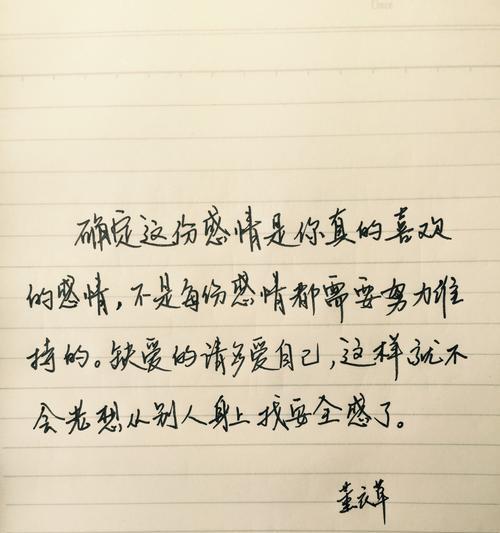 Date
确定这份感情是你真的喜欢
的感情，不是每份感情都需要努力维
持的。缺爱的请多爱自己，这样就不
会老想从别人身上找安全感了。
薰衣草